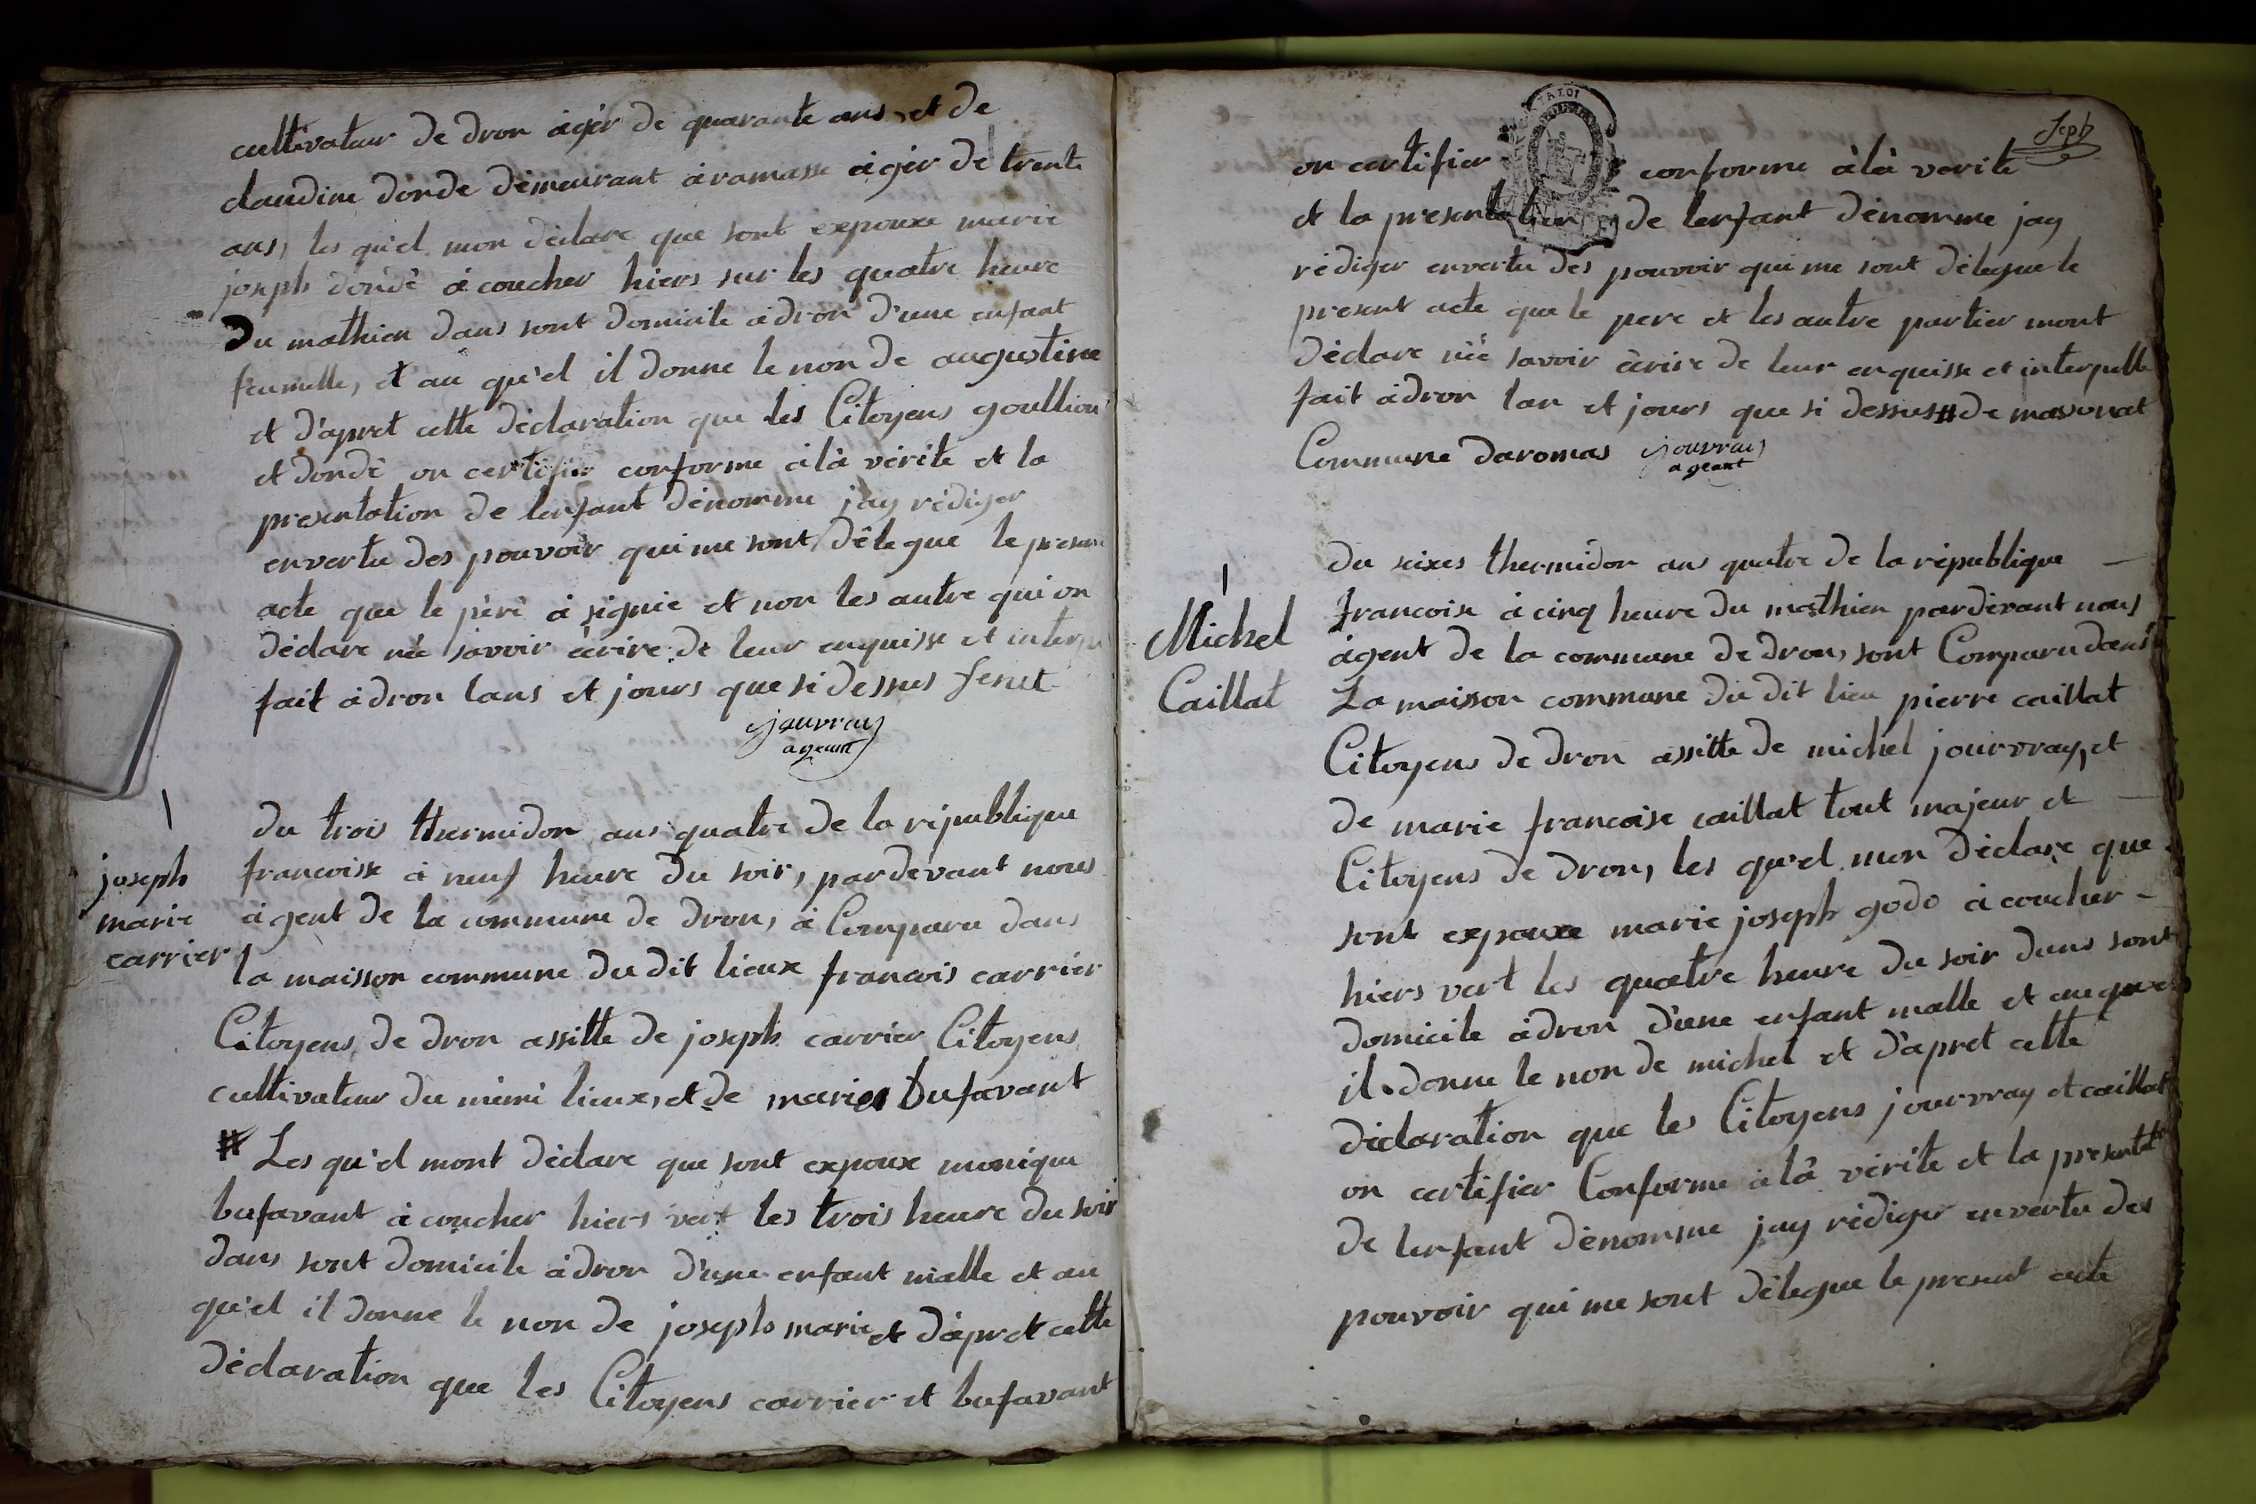 cultivateur de dron àgér de quarante ans, et de
claudine donde démeurant àromasse àgér de trente
ans, les qu'el mon déclare que sont expouxe marie
joseph dondé à coucher hiers sur les quatre heure
Du mathien dans sont domicile àdron d'une enfant
feumelle, et au qu'el il donne le non de augustine
et d'apret cette déclaration que les Citoyens goullion
et dondé on certifier conforme àlà vérite et la
presentation de lenfant dénomme jay rédiger
envertu des pouvoir qui me sont délegue le present
acte que le péré à signie et non les autre qui on
déclare néé savoir écrire de leur enquisse et
fait àdron lans et jours que si dessus fenet
jouvray
ageant
joseph
marie
carrier
du trois thermidor ans quatre de la république
francoisse à neuf heure du soir, pardevant nous
àgent de la commune de dron, à Comparu dans
la maisson commune du dit lieux francois carrier
Citoyens de dron assitte de joseph carrier Citoyens
cultivateur du mémé lieux, et de marie bufavant
# Les qu'el mont déclare que sont expoux monique
bufavant à coucher hiers vert les trois heure du soir
dans sont domicile àdron d'une enfant malle et au
qu'el il donne le non de joseph marie et d'apret cette
déclaration que les Citoyens carrier et bufavant
Sept
on certifier conforme àlà verite
et la presentation de lenfant dénomme jay
rédiger envertu des pouvoir qui me sont délegue le
present acte que le pere et les autre partier mont
déclare néé savoir écrire de leur enquisse et interpelle
fait àdron lan et jours que si dessus # de massonat
Commune daromas jouvray
ageant
Michel
Caillat
du seixes thermidor ans quatre de la république
francoise à cinq heure du mathien pardevant nous
àgent de la commune de dron, sont Comparu dans
La maisson commune du dit lieu pierre caillat
Citoyens de dron assitte de michel jourvray, et
de marie francoise caillat tout majeur et
Citoyens de dron, les qu'el mon déclare que
sont expouxe marie joseph godo à coucher
hiers vert les quatre heure du soir dans sont
domicile àdron d'une enfant malle et au quel
il donne le non de michel et d'apret cette
déclaration que les Citoyens jourvray et caillat
on certifier Conforme àlà vérite et la presentat
de lenfant dénomme jay rédiger envertu des
pouvoir qui me sont délegue le present acte